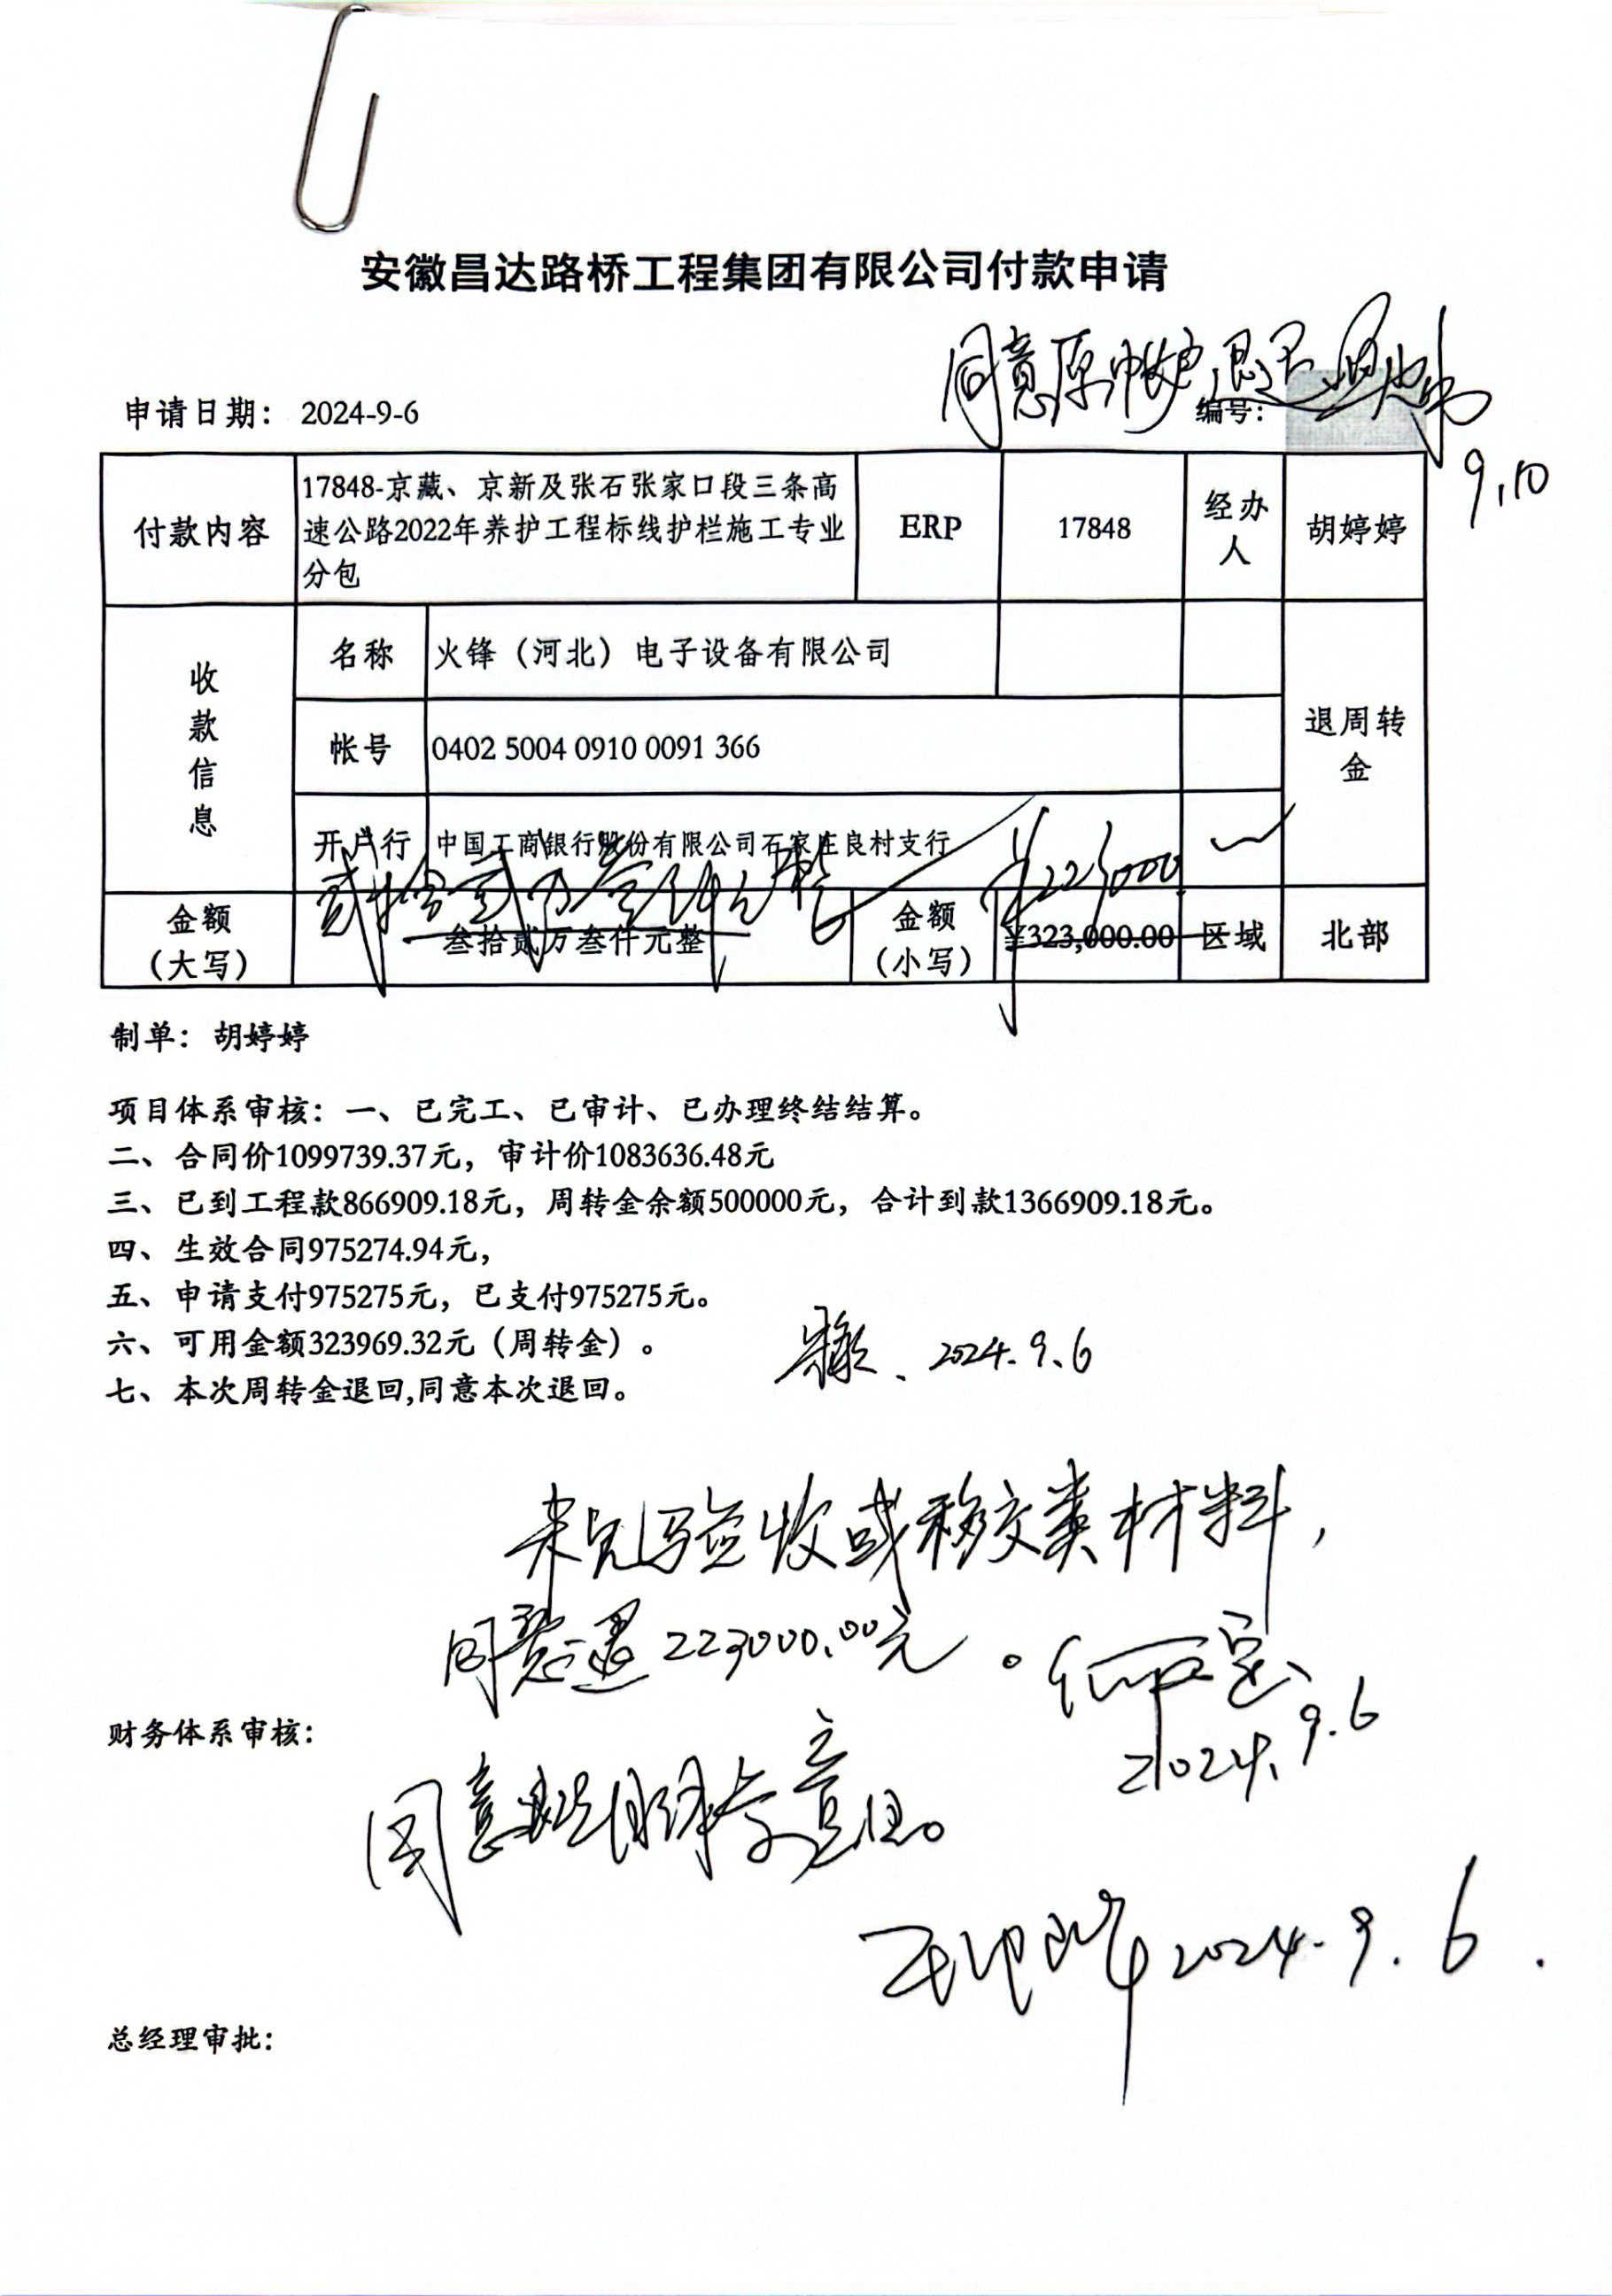 安徽昌达路桥工程集团有限公司付款申请
同意原帐户退还
申请日期： 2024-9-6
编号：
9.10
付款内容
17848-京藏、京新及张石张家口段三条高
速公路2022年养护工程标线护栏施工专业
分包
ERP
17848
经办
人
胡婷婷
收
款
信
息
名称
火锋（河北）电子设备有限公司
帐号
0402 5004 0910 0091 366
退周转
金
开户行
中国工商银行股份有限公司石家庄良村支行
贰拾贰万叁仟元整
¥223000
金额
（大写）
叁拾贰万叁仟元整
金额
（小写）
¥323,000.00
区域
北部
制单：胡婷婷
项目体系审核：一、已完工、已审计、已办理终结结算。
二、合同价1099739.37元，审计价1083636.48元
三、已到工程款866909.18元，周转金余额500000元，合计到款1366909.18元。
四、生效合同975274.94元，
五、申请支付975275元，已支付975275元。
六、可用金额323969.32元（周转金）。
2024.9.6
七、本次周转金退回,同意本次退回。
未见验收或移交类材料，
同意退223000.00元。
2024.9.6
财务体系审核：
同意意见。
2024.9.6.
总经理审批：